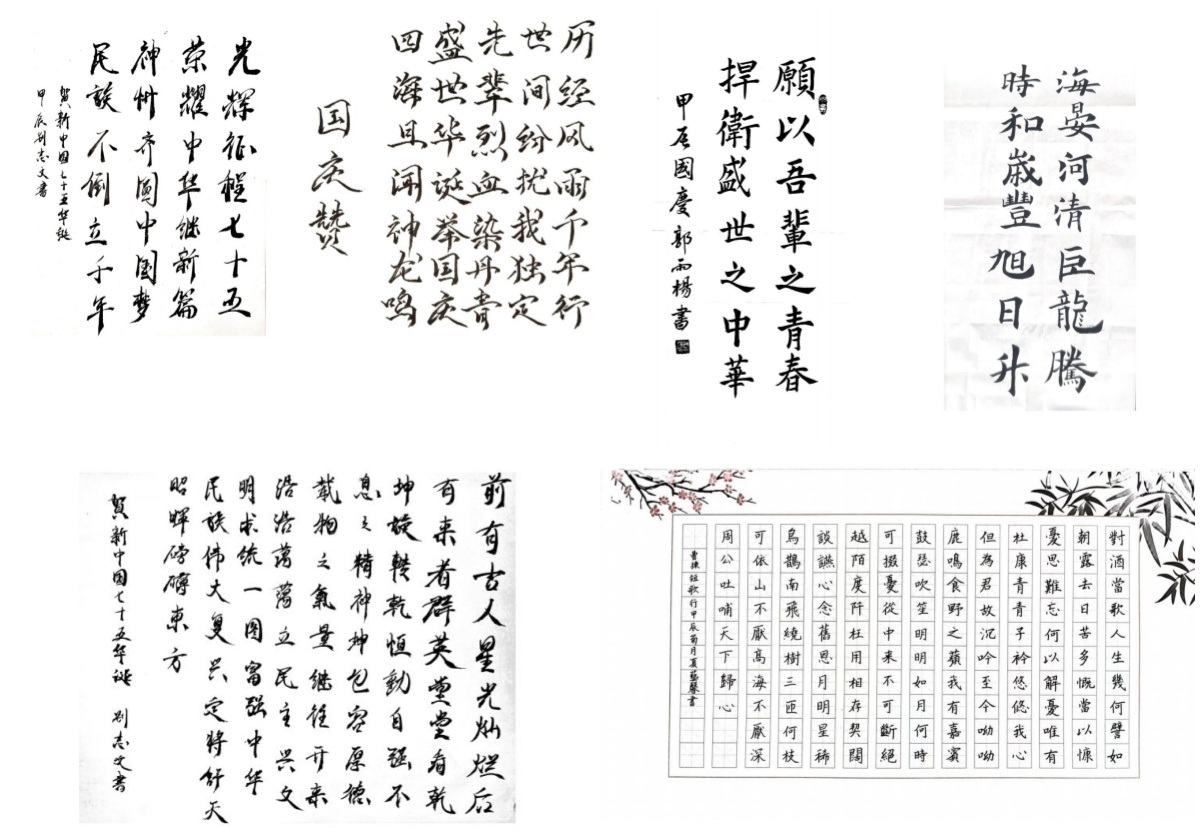 光辉征程七十五
荣耀中华继新篇
神州齐圆中国梦
民族不倒立千年
贺新中国七十五华诞
甲辰刘志文书
历经风雨千年行
世间纷扰我独定
先辈烈血染丹青
盛世华诞举国庆
四海且闻神龙鸣
国庆赞
願以吾輩之青春
捍衛盛世之中華
甲辰國慶郭雨楊書
海晏河清巨龍騰
時和歲豐旭日升
前有古人星光灿烂后
有来者群英堂堂看乾
坤旋转乾恒動自强不
息之精神坤包容厚德
载物之氣量继往开来
浩浩荡荡立民主兴文
明求统一图富强中华
民族伟大复兴定将舒天
昭晖磅礴东方
贺新中国七十五华诞 刘志文书
對酒當歌人生幾何譬如
朝露去日苦多慨當以慷
憂思難忘何以解憂唯有
杜康青青子衿悠悠我心
但為君故沉吟至今呦呦
鹿鳴食野之蘋我有嘉賓
鼓瑟吹笙明明如月何時
可掇憂從中来不可斷絕
越陌度阡枉用相存契闊
談讌心念舊恩月明星稀
烏鵲南飛繞樹三匝何枝
可依山不厭高海不厭深
周公吐哺天下歸心
曹操短歌行甲辰菊月夏藝馨書